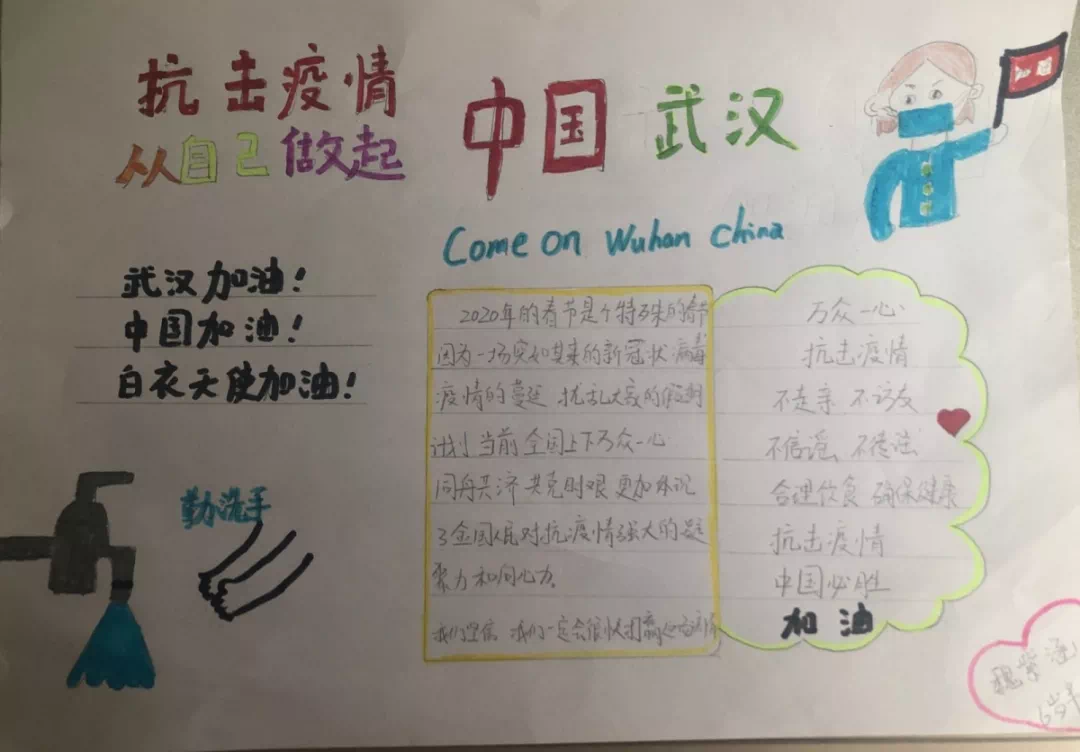 抗击疫情
从自己做起
中国 武汉
Come on Wuhan China
武汉加油!
中国加油!
白衣天使加油!
勤洗手
2020年的春节是个特殊的春节
因为一场突如其来的新冠状病毒
疫情的蔓延 扰乱大家的假期
计划 当前 全国上下万众一心
同舟共济 共克时艰 更加体现
了全国人民对抗疫情强大的凝
聚力和向心力.
我们坚信 我们一定会很快打赢
万众一心
抗击疫情
不走亲 不访友
不信谣 不传谣
合理饮食 确保健康
抗击疫情
中国必胜
加油
魏紫涵
6岁半